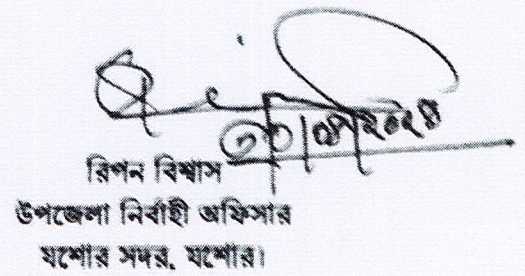 রিপন বিশ্বাস
উপজেলা নির্বাহী অফিসার
যশোর সদর, যশোর।